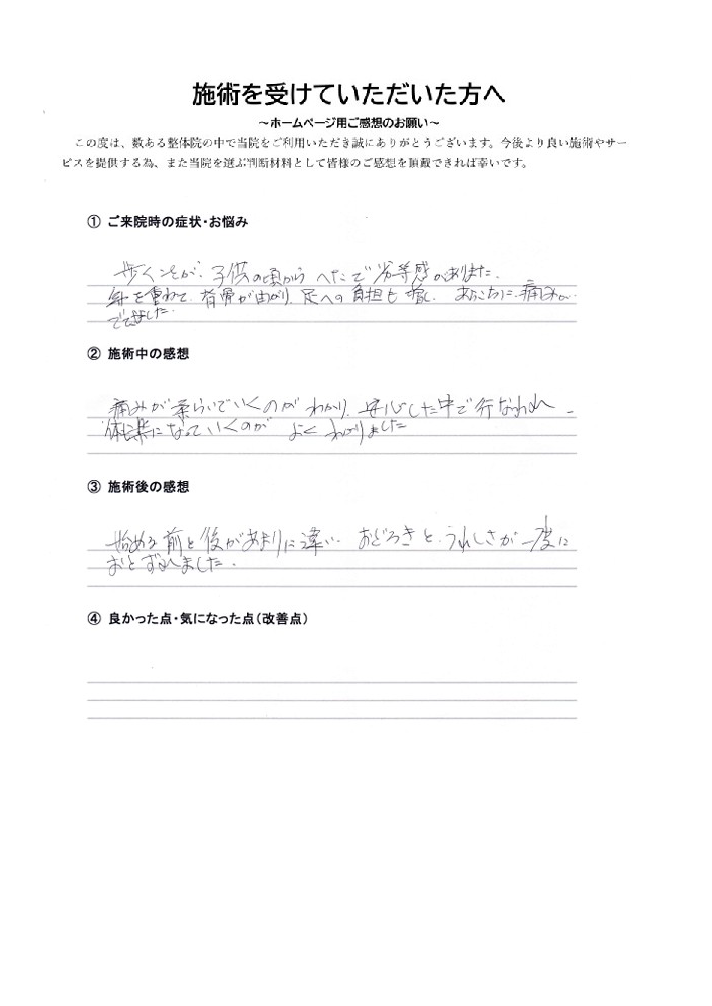 施術を受けていただいた方へ
～ホームページ用ご感想のお願い～
この度は、数ある整体院の中で当院をご利用いただき誠にありがとうございます。今後より良い施術やサー
ビスを提供する為、また当院を選ぶ判断材料として皆様のご感想を頂戴できれば幸いです。
① ご来院時の症状・お悩み
歩くことが、子供の頃から へたで 劣等感がありました。
年を重ねて、背骨が曲がり、足への負担も増し、あちこちに、痛みが
でてきました。
② 施術中の感想
痛みが柔らいでいくのが わかり、安心した中で行なわれ
体が楽になっていくのが よく わかりました
③ 施術後の感想
始める前と後があまりに違い、おどろきと、うれしさが一度に
おとずれました。
④ 良かった点・気になった点（改善点）